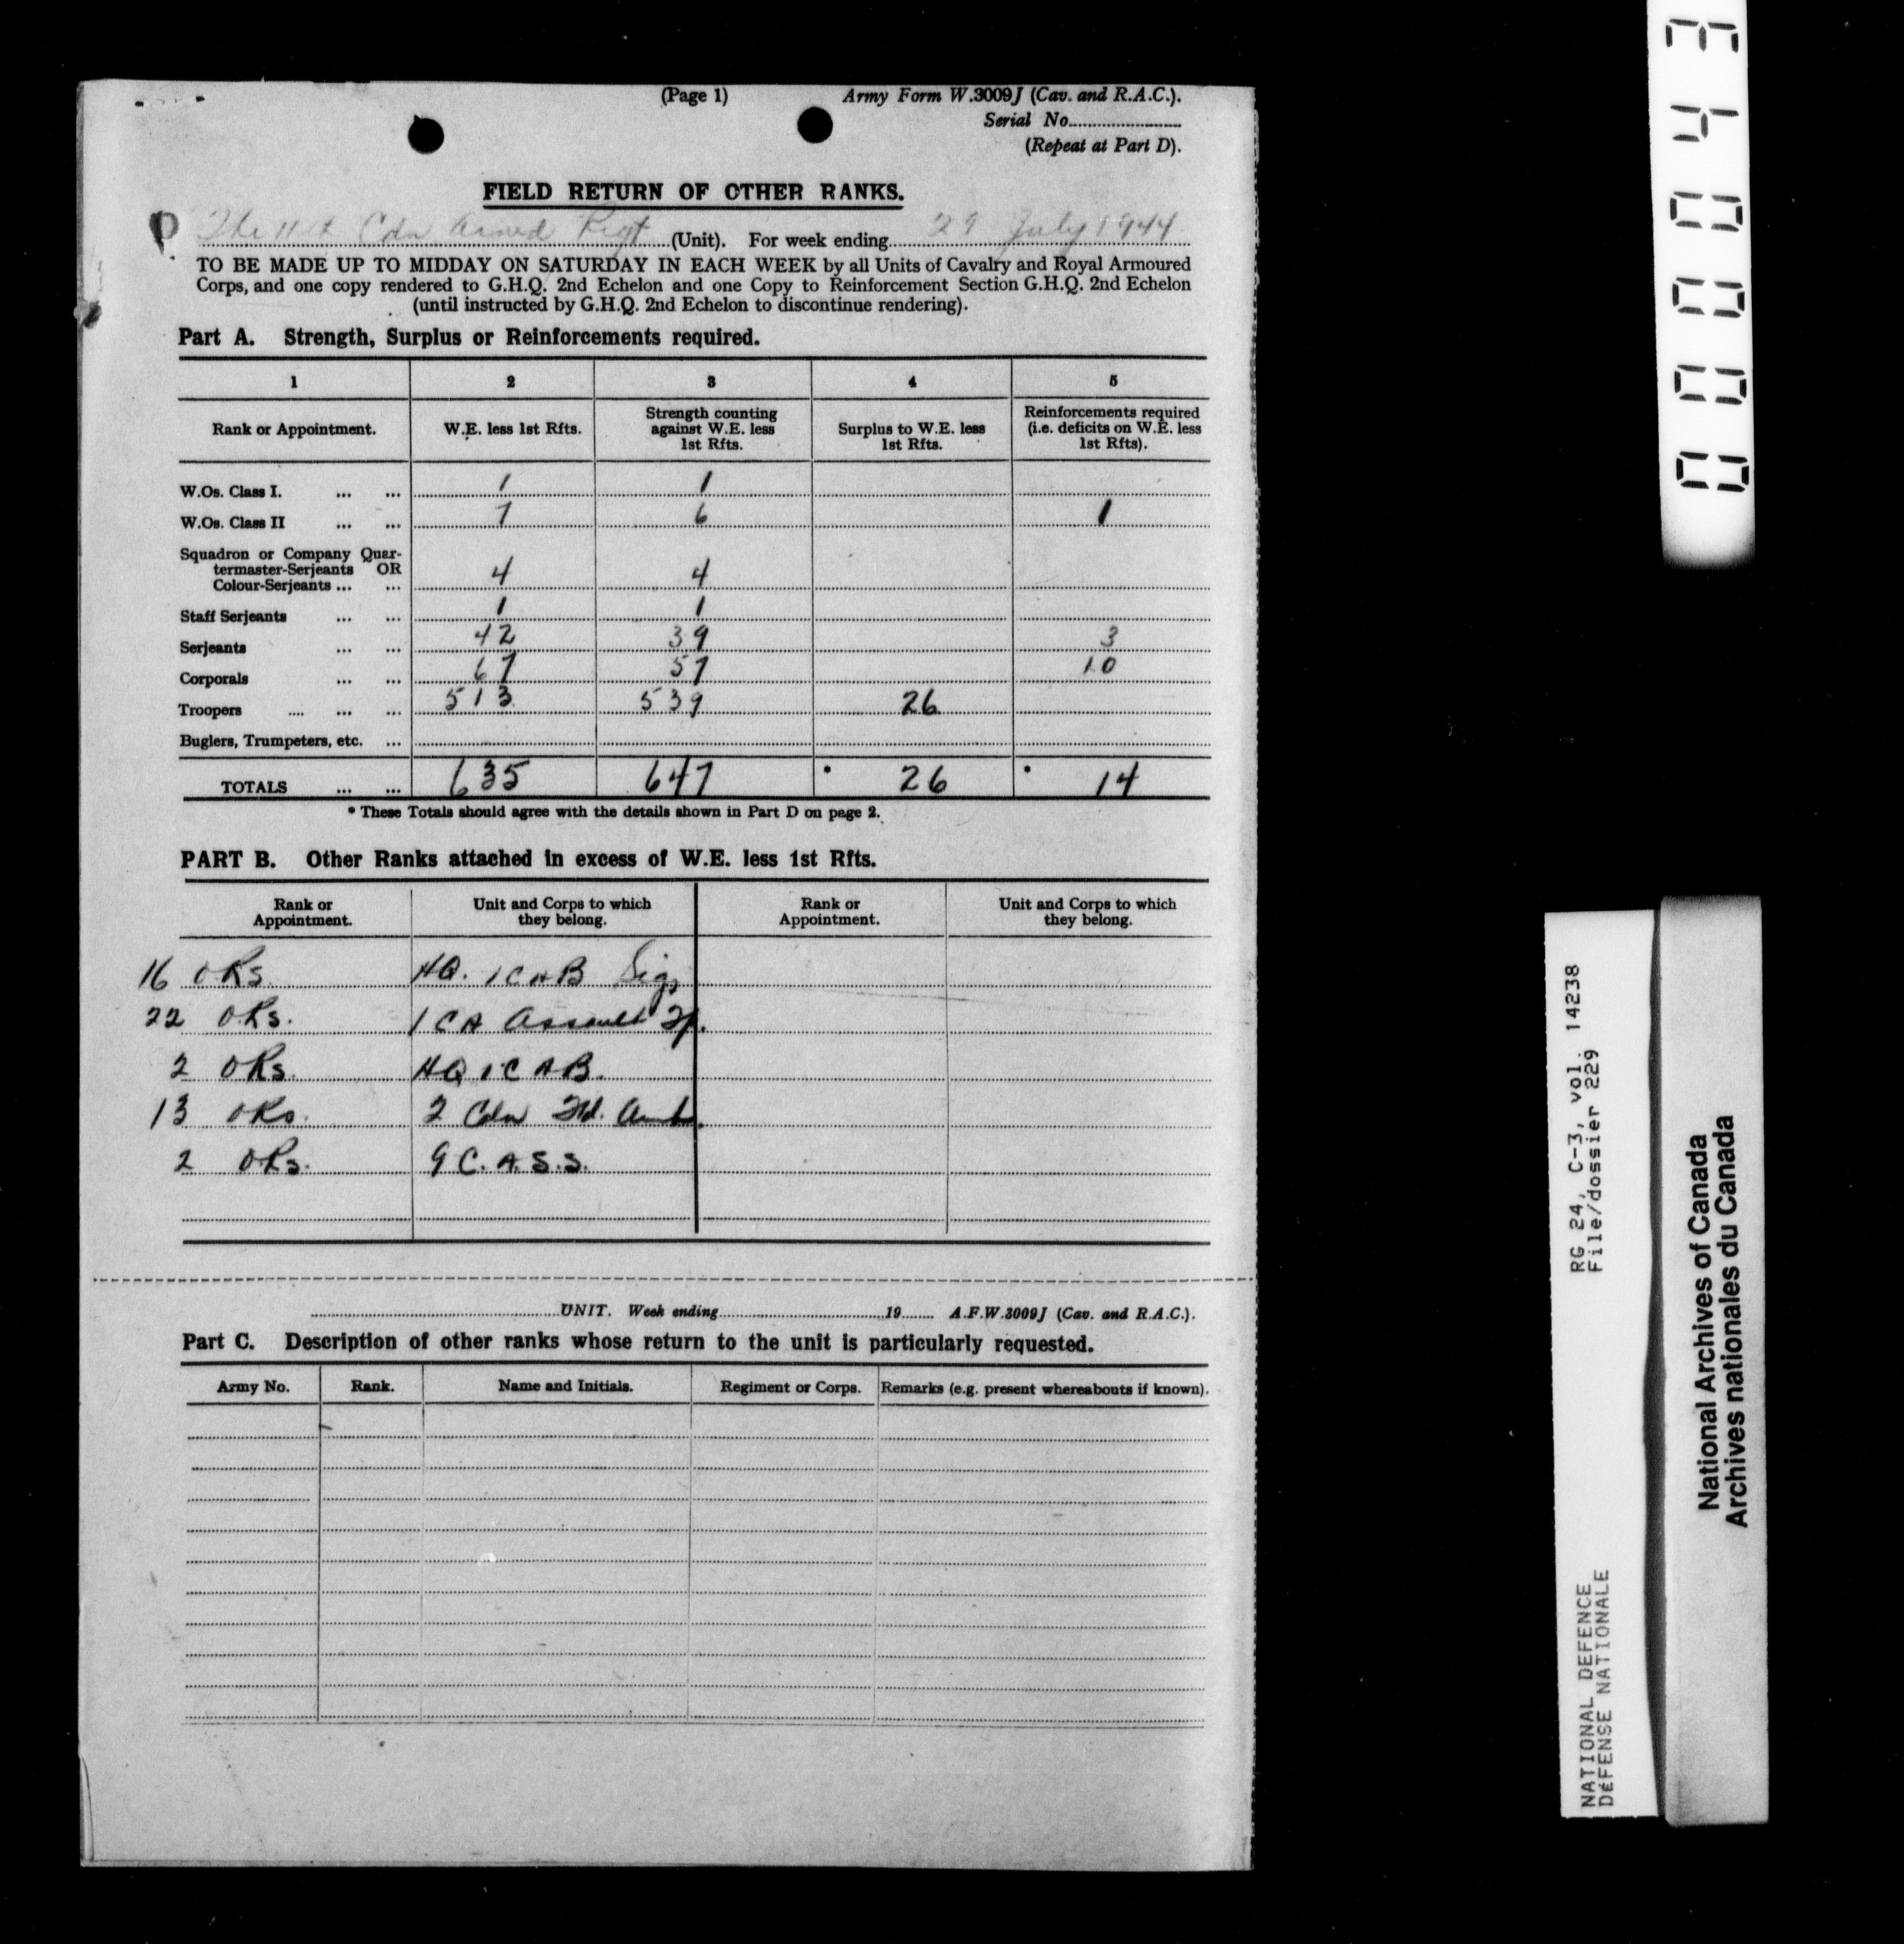 (Page 1) Army Form W.3009J (Cav. and R.A.C.).
Serial No.
(Repeat at Part D).
FIELD RETURN OF OTHER RANKS.
The 11th Cdn Armd Regt (Unit). For week ending 29 July 1944
TO BE MADE UP TO MIDDAY ON SATURDAY IN EACH WEEK by all Units of Cavalry and Royal Armoured
Corps, and one copy rendered to G.H.Q. 2nd Echelon and one Copy to Reinforcement Section G.H.Q. 2nd Echelon
(until instructed by G.H.Q. 2nd Echelon to discontinue rendering).
Part A. Strength, Surplus or Reinforcements required.
1 2 3 4 5
Rank or Appointment. W.E. less 1st Rfts. Strength counting against W.E. less 1st Rfts. Surplus to W.E. less 1st Rfts. Reinforcements required (i.e. deficits on W.E. less 1st Rfts).
W.Os. Class I. ... ... 1 1
W.Os. Class II ... ... 7 6 1
Squadron or Company Quar-
termaster-Serjeants OR
Colour-Serjeants ... ... 4 4
Staff Serjeants ... ... 1 1
Serjeants ... ... 42 39 3
Corporals ... ... 67 57 10
Troopers .... ... ... 513 539 26
Buglers, Trumpeters, etc. ...
TOTALS ... ... 635 647 * 26 * 14
* These Totals should agree with the details shown in Part D on page 2.
PART B. Other Ranks attached in excess of W.E. less 1st Rfts.
Rank or Appointment. Unit and Corps to which they belong. Rank or Appointment. Unit and Corps to which they belong.
16 ORs. HQ. 1 CAB Sigs
22 ORs. 1 CA Assault Tp.
2 ORs. HQ 1 CAB.
13 ORs. 2 Cdn Fd. Amb.
2 ORs. 9 C.A.S.S.
UNIT. Week ending 19 A.F.W.3009J (Cav. and R.A.C.).
Part C. Description of other ranks whose return to the unit is particularly requested.
Army No. Rank. Name and Initials. Regiment or Corps. Remarks (e.g. present whereabouts if known).
000043
RG 24, C-3, vol. 14238
File/dossier 229
NATIONAL DEFENCE
DÉFENSE NATIONALE
National Archives of Canada
Archives nationales du Canada